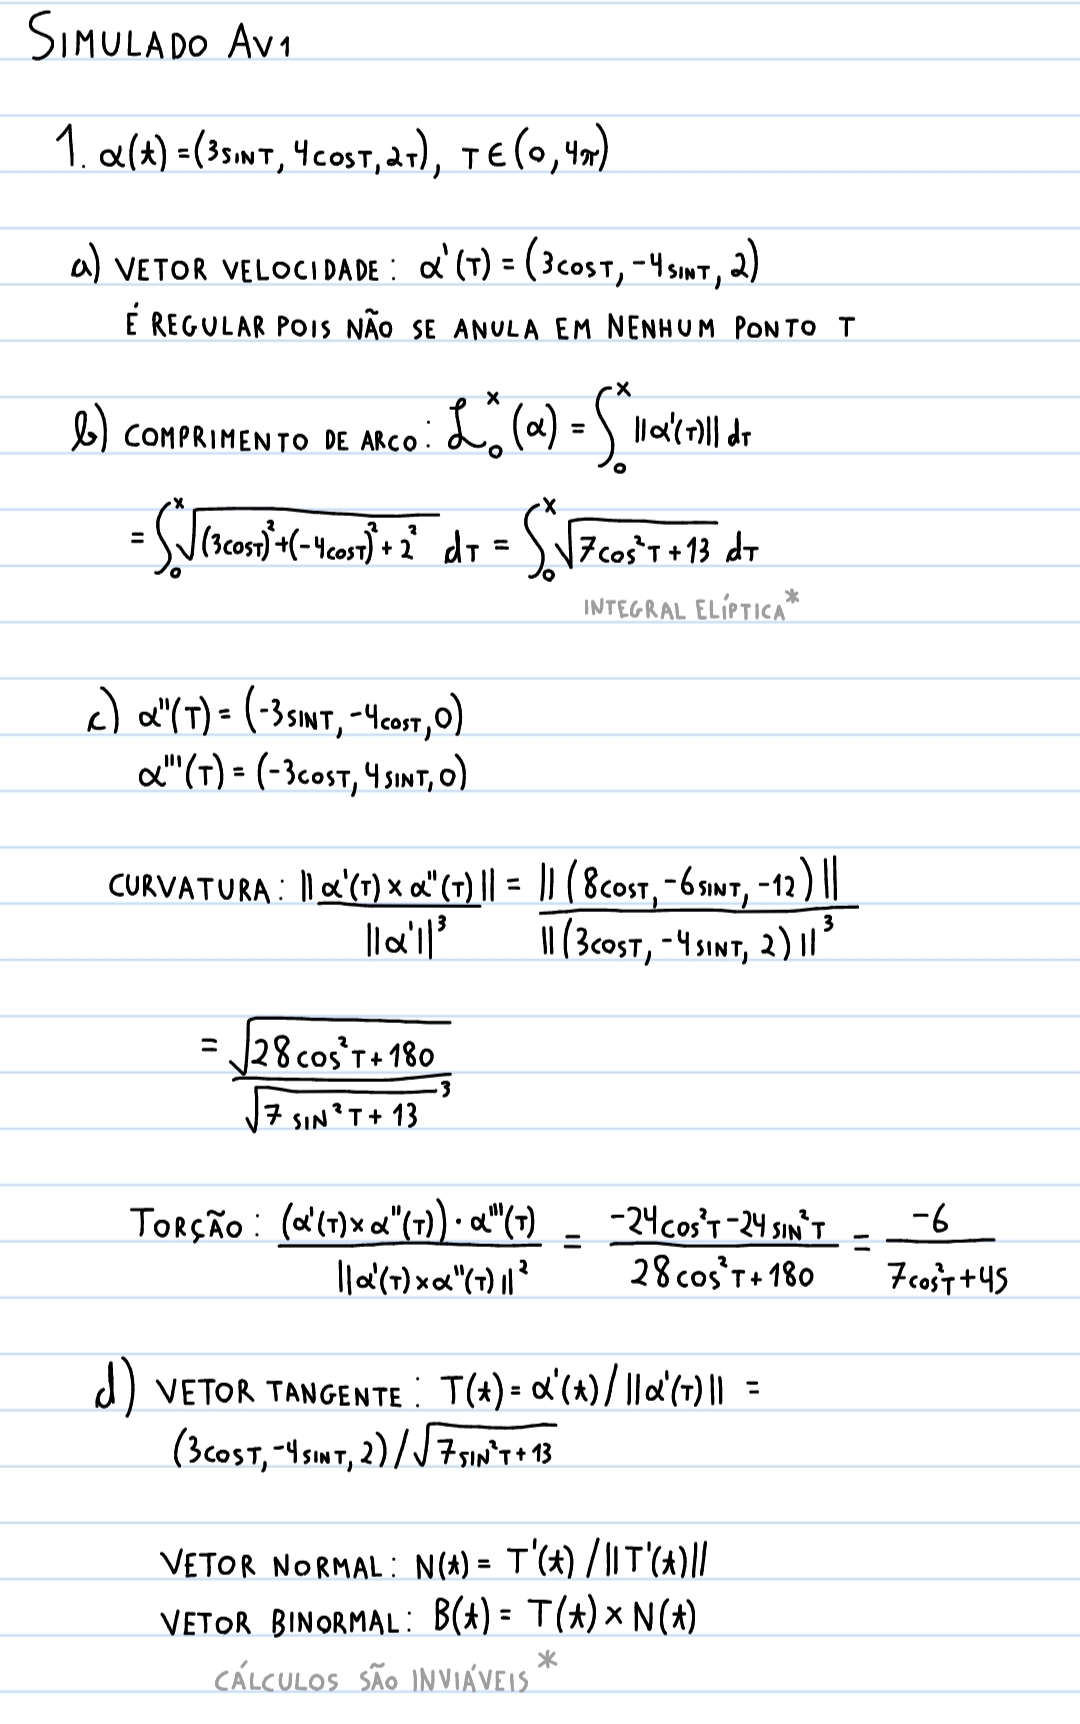 SIMULADO AV1
1. α(t) = (3SINT, 4COST, 2T), T∈(0, 4π)
a) VETOR VELOCIDADE: α'(T) = (3COST, -4SINT, 2)
É REGULAR POIS NÃO SE ANULA EM NENHUM PONTO T
b) COMPRIMENTO DE ARCO: L₀ˣ(α) = ∫₀ˣ ||α'(T)|| dT
= ∫₀ˣ √((3COST)² + (-4COST)² + 2²) dT = ∫₀ˣ √(7COS²T + 13) dT
INTEGRAL ELÍPTICA*
c) α''(T) = (-3SINT, -4COST, 0)
α'''(T) = (-3COST, 4SINT, 0)
CURVATURA: ||α'(T) × α''(T)|| / ||α'||³ = ||(8COST, -6SINT, -12)|| / ||(3COST, -4SINT, 2)||³
= √(28COS²T + 180) / √(7SIN²T + 13)³
TORÇÃO: (α'(T) × α''(T)) · α'''(T) / ||α'(T) × α''(T)||² = -24COS²T - 24SIN²T / 28COS²T + 180 = -6 / 7COS²T + 45
d) VETOR TANGENTE: T(t) = α'(t) / ||α'(T)|| =
(3COST, -4SINT, 2) / √(7SIN²T + 13)
VETOR NORMAL: N(t) = T'(t) / ||T'(t)||
VETOR BINORMAL: B(t) = T(t) × N(t)
CÁLCULOS SÃO INVIÁVEIS*